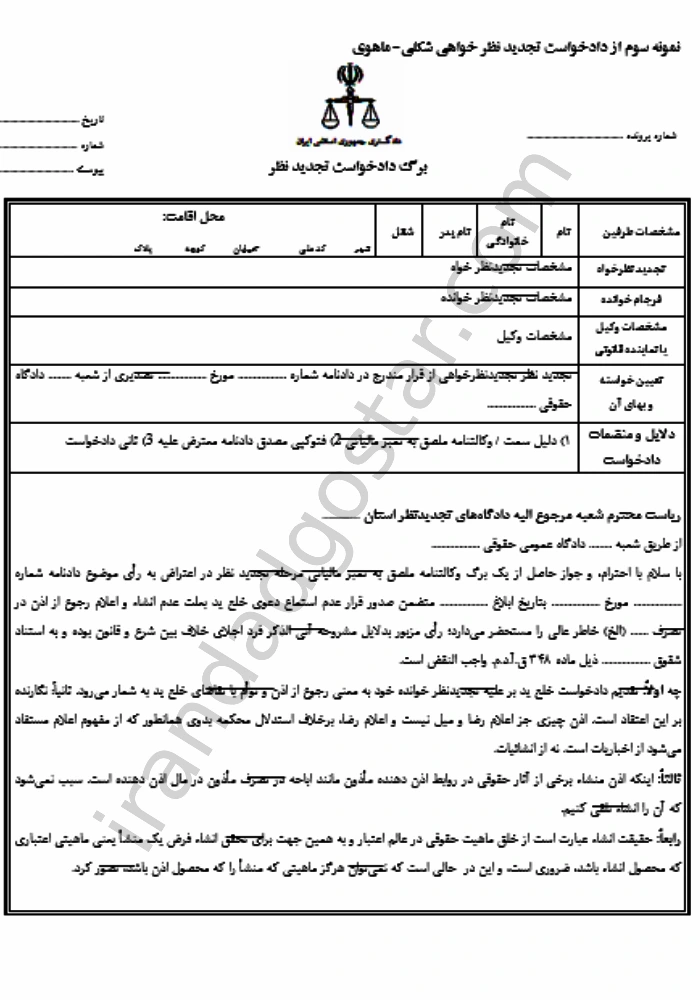 نمونه سوم از دادخواست تجدید نظر خواهی شکلی-ماهوی
دادگستری جمهوری اسلامی ایران
تاریخ ....................
شماره پرونده ....................
شماره ....................
برگ دادخواست تجدید نظر
پیوست ....................
مشخصات طرفین نام نام خانوادگی نام پدر شغل محل اقامت:
شهر کدملی خیابان کوچه پلاک
تجدید نظرخواه مشخصات تجدیدنظر خواه
فرجام خوانده مشخصات تجدیدنظر خوانده
مشخصات وکیل یا نماینده قانونی مشخصات وکیل
تعیین خواسته و بهای آن تجدید نظر تجدیدنظرخواهی از قرار مندرج در دادنامه شماره ............ مورخ ............ تصدیری از شعبه ...... دادگاه
حقوقی ............
دلایل و منضمات دادخواست 1) دلیل سمت / وکالتنامه ملصق به تمبر مالیاتی 2) فتوکپی مصدق دادنامه معترض علیه 3) ثانی دادخواست
ریاست محترم شعبه مرجوع الیه دادگاه‌های تجدیدنظر استان .........
از طریق شعبه ...... دادگاه عمومی حقوقی ............
با سلام با احترام، و جواز حاصل از یک برگ وکالتنامه ملصق به تمبر مالیاتی مرحله تجدید نظر در اعتراض به رأی موضوع دادنامه شماره
............ مورخ ............ بتاریخ ابلاغ ............ متضمن صدور قرار عدم استماع دعوی خلع ید بعلت عدم انشاء و اعلام رجوع از اذن در
تصرف ..... (الخ) خاطر عالی را مستحضر می‌دارد؛ رأی مزبور بدلایل مشروحه آتی الذکر فرد اجلای خلاف بین شرع و قانون بوده و به استناد
شقوق ............ ذیل ماده ۳۴۸ ق.آ.د.م. واجب النقض است.
چه اولاً: تقدیم دادخواست خلع ید بر علیه تجدیدنظر خوانده خود به معنی رجوع از اذن و توأم با تقاضای خلع ید به شمار می‌رود. ثانیاً: نگارنده
بر این اعتقاد است. اذن چیزی جز اعلام رضا و میل نیست و اعلام رضا، برخلاف استدلال محکمه بدوی همانطور که از مفهوم اعلام مستفاد
می‌شود از اخباریات است. نه از انشائیات.
ثالثاً: اینکه اذن منشاء برخی از آثار حقوقی در روابط اذن دهنده مأذون مانند اباحه در تصرف مأذون در مال اذن دهنده است. سبب نمی‌شود
که آن را انشاء تلقی کنیم.
رابعاً: حقیقت انشاء عبارت است از خلق ماهیت حقوقی در عالم اعتبار و به همین جهت برای تحقق انشاء فرض یک منشأ یعنی ماهیتی اعتباری
که محصول انشاء باشد، ضروری است، و این در حالی است که نمی‌توان هرگز ماهیتی که منشأ را که محصول اذن باشد، تصور کرد.
irandadgostar.com